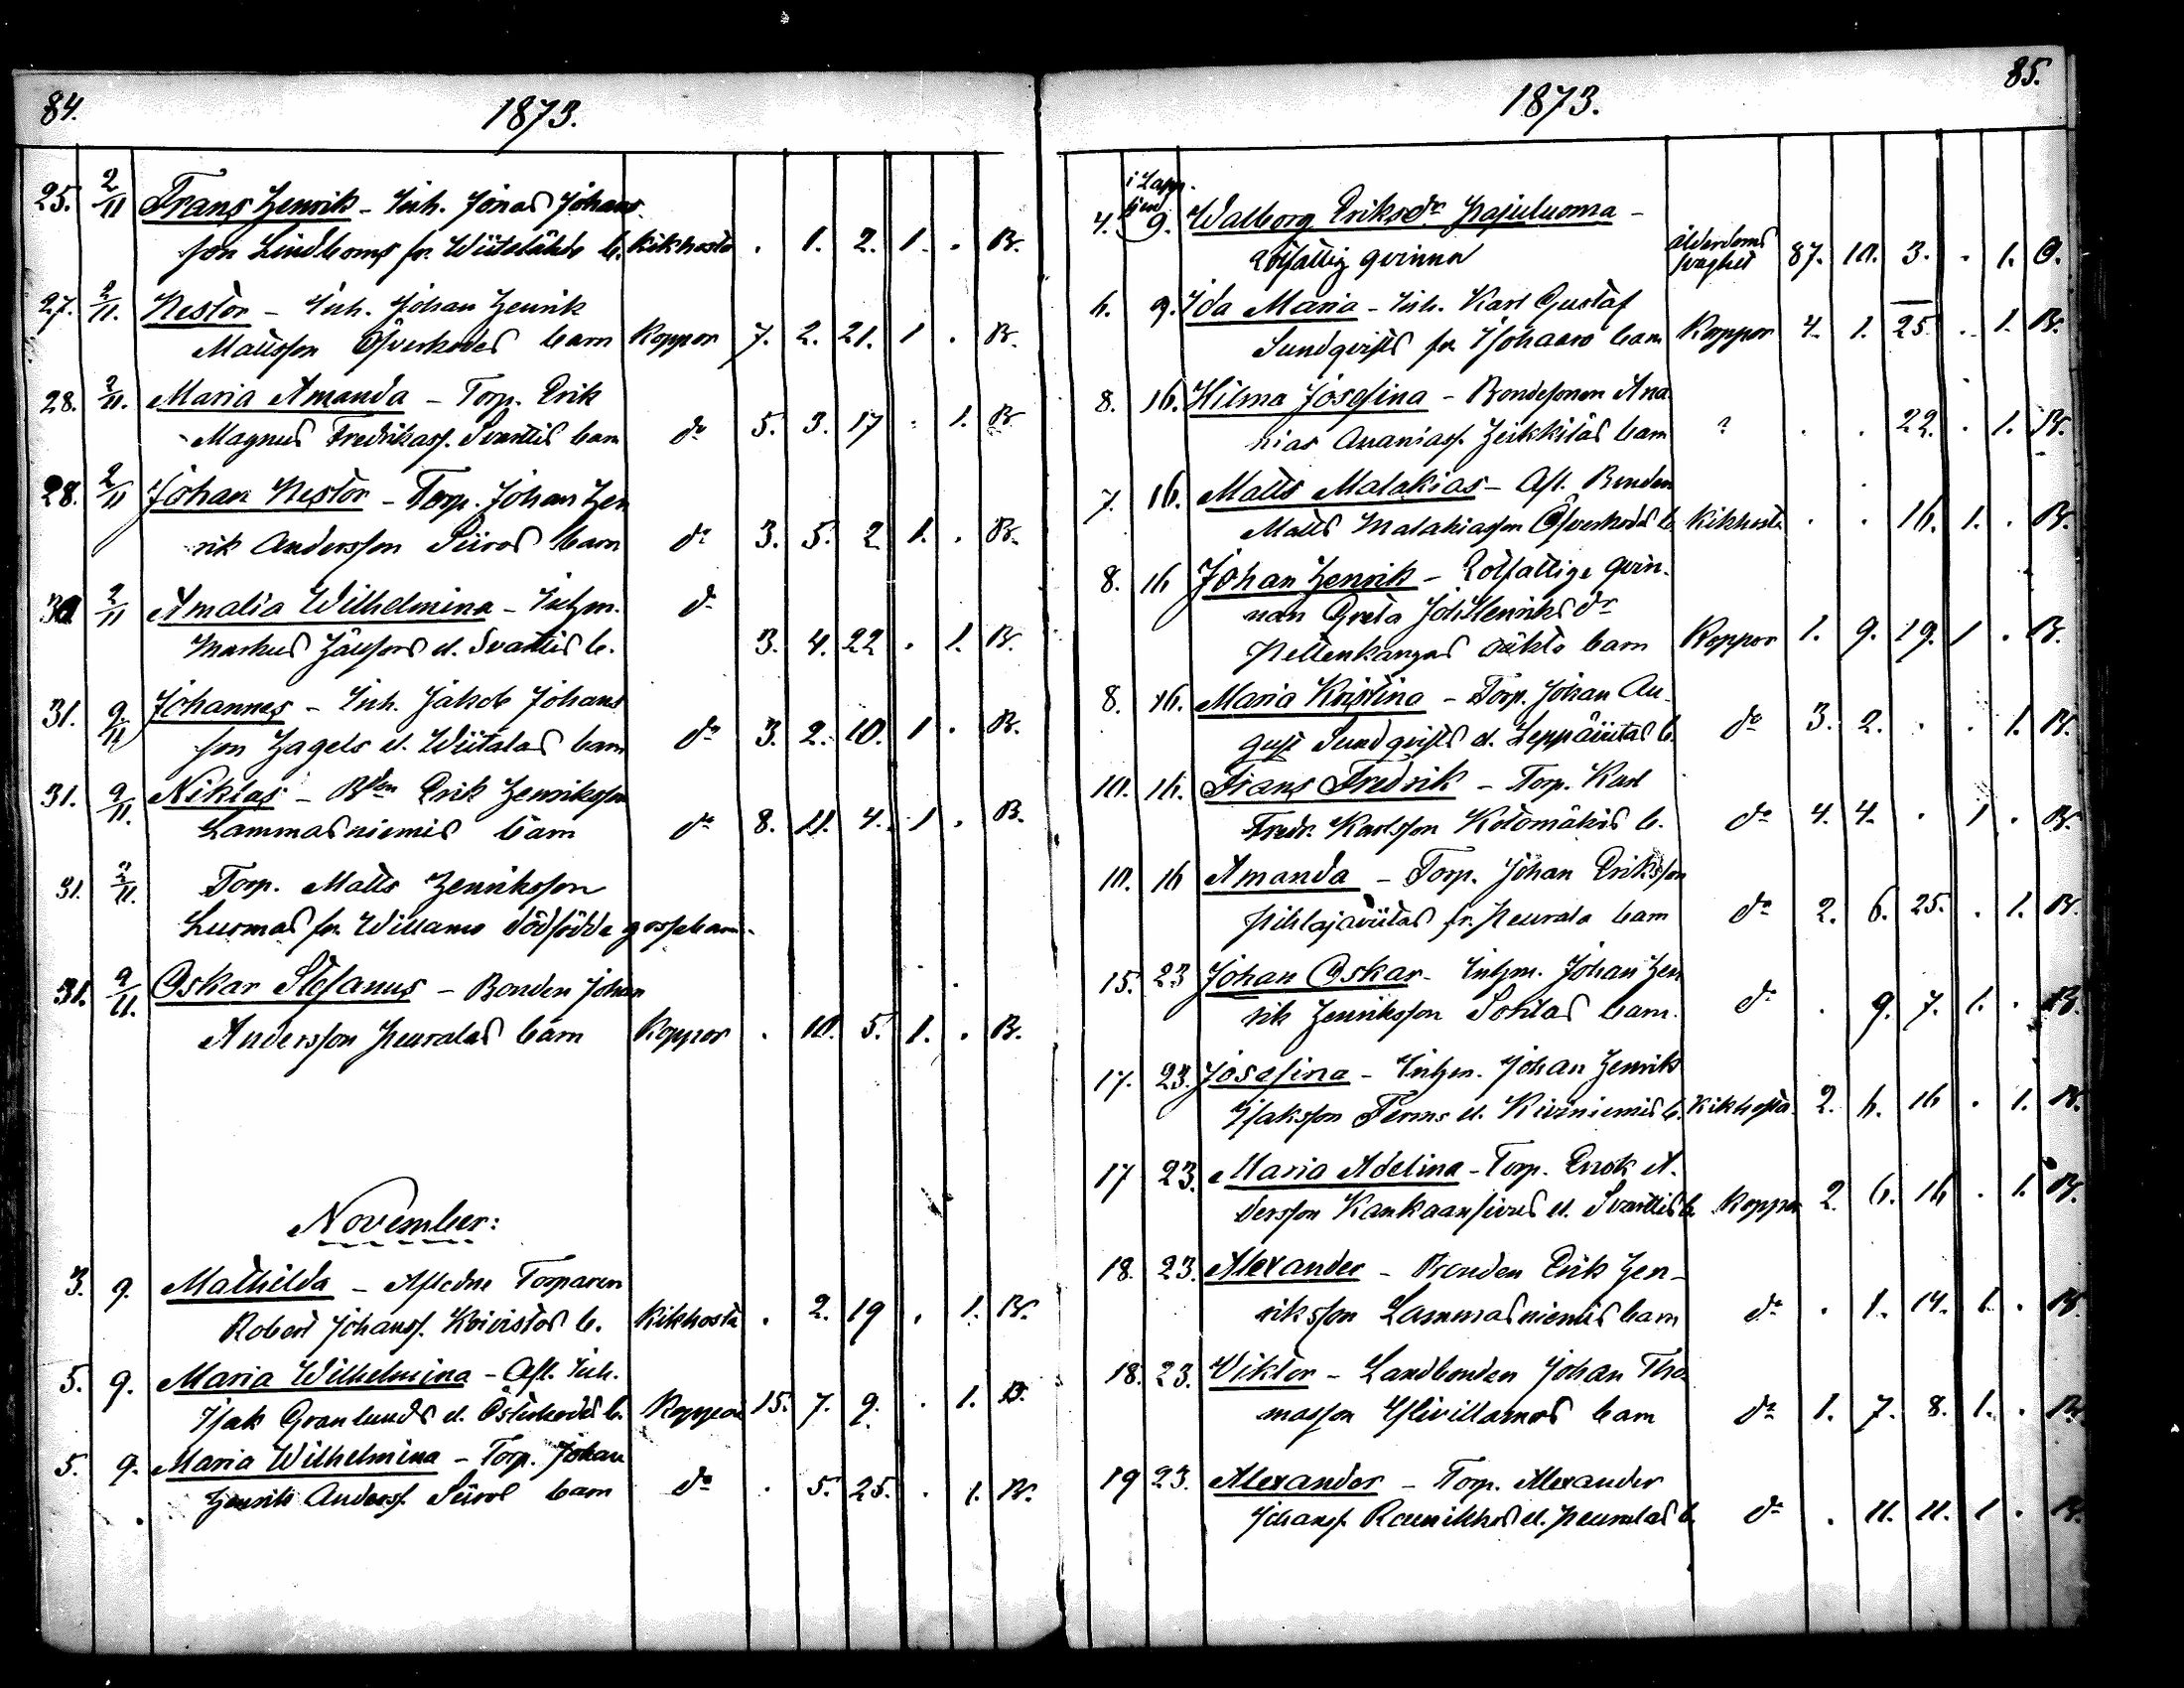 84.
1873.
25. 2/11 Frans Henrik - Inh. Jonas Johans
son Lindboms fr. Wiitelähde b. Kikhosta . 1. 2. 1. . B.
27. 2/11. Nestor - Inh. Johan Henrik
Mattsson Öfverkodes barn Koppor 7. 2. 21. 1 . B.
28. 2/11. Maria Amanda - Torp. Erik
Magnus Fredrikss. Svartis barn do 5. 3. 17 . 1. B
28. 2/11 Johan Nestor - Torp. Johan Hen
rik Andersson Siiros barn do 3. 5. 2 1. . B.
30 2/11 Amalia Wilhelmina - Inhm. do
Markus d. Svartis b. 3. 4. 22 . 1. B.
31. 9/11 Johannes - Inh. Jakob Johans
son Hagels d. Wiitalas barn do 3. 2. 10. 1 . B.
31. 9/11. Niklas - Bden Erik Henriksson
Lammasniemis barn do 8. 11. 4. 1 . B.
31. 2/11. Torp. Matts Henriksson
Luomas fr. Willamo dödfödde gossebarn.
31. 9/11. Oskar Stefanus - Bonden Johan
Andersson Heuralas barn Koppor . 10. 5. 1. . B.
November:
3. 9. Mathilda - Afledne Torparen
Robert Johanss. Koivistos b. Kikhosta . 2. 19 . 1. B.
5. 9. Maria Wilhelmina - Afl. Inh.
Isak Granlunds d. b. Koppor 15. 7. 9. . 1. B.
5. 9. Maria Wilhelmina - Torp. Johan
Henrik Anderss. Siiros barn do . 5. 25. . 1. B.
85.
1873.
i Lapp.
4. 9. Walborg Eriksdr Hajuluoma -
Rotfattig qvinna ålderdoms svaghet 87. 10. 3. . 1. O.
6. 9. Ida Maria - Inh. Karl Gustaf
Sundqvists fr. barn Koppor 4. 1. 25. . 1. B.
8. 16. Hilma Josefina - Bondesonen Ana
nias Ananiass. Heikkiläs barn ? . . 22. . 1. B.
7. 16. Matts Malakias - Afl. Bonden
Matts Malakiasson Öfverkodes b. Kikhosta . . 16. 1. . B.
8. 16 Johan Henrik - Rotfattige qvin-
nan Greta Joh. Henriksdr
Nettenkangas oäkta barn Koppor 1. 9. 19. 1 . B.
8. 16. Maria Kristina - Torp. Johan Au-
gust Sundqvists d. b. do 3. 2. . . 1. B.
10. 16. Frans Fredrik - Torp. Karl
Fredr. Karlsson Kotomäkis b. do 4. 4. . 1 . B.
10. 16 Amanda - Torp. Johan Eriksson
Pihlajaviitas fr. Heurala barn do 2. 6. 25. . 1. B.
15. 23 Johan Oskar - Inhm. Johan Hen
rik Henriksson Sontas barn. do . 9. 7. 1. . B.
17. 23. Josefina - Inhm. Johan Henrik
Isaksson d. Kiviniemis b. Kikhosta. 2. 6. 16 . 1. B.
17 23. Maria Adelina - Torp. Erik A.
dersson d. Svartis b. Koppor 2. 6. 16 . 1. B.
18. 23. Alexander - Bonden Erik Hen-
riksson Lammasniemis barn do . 1. 14. 1. . B.
18. 23. Viktor - Landbonden Johan Tho
masson Yliwillamos barn do 1. 7. 8. 1. . B.
19 23. Alexander - Torp. Alexander
Johanss. d. Heuralas b. do . 11. 11. 1 . B.